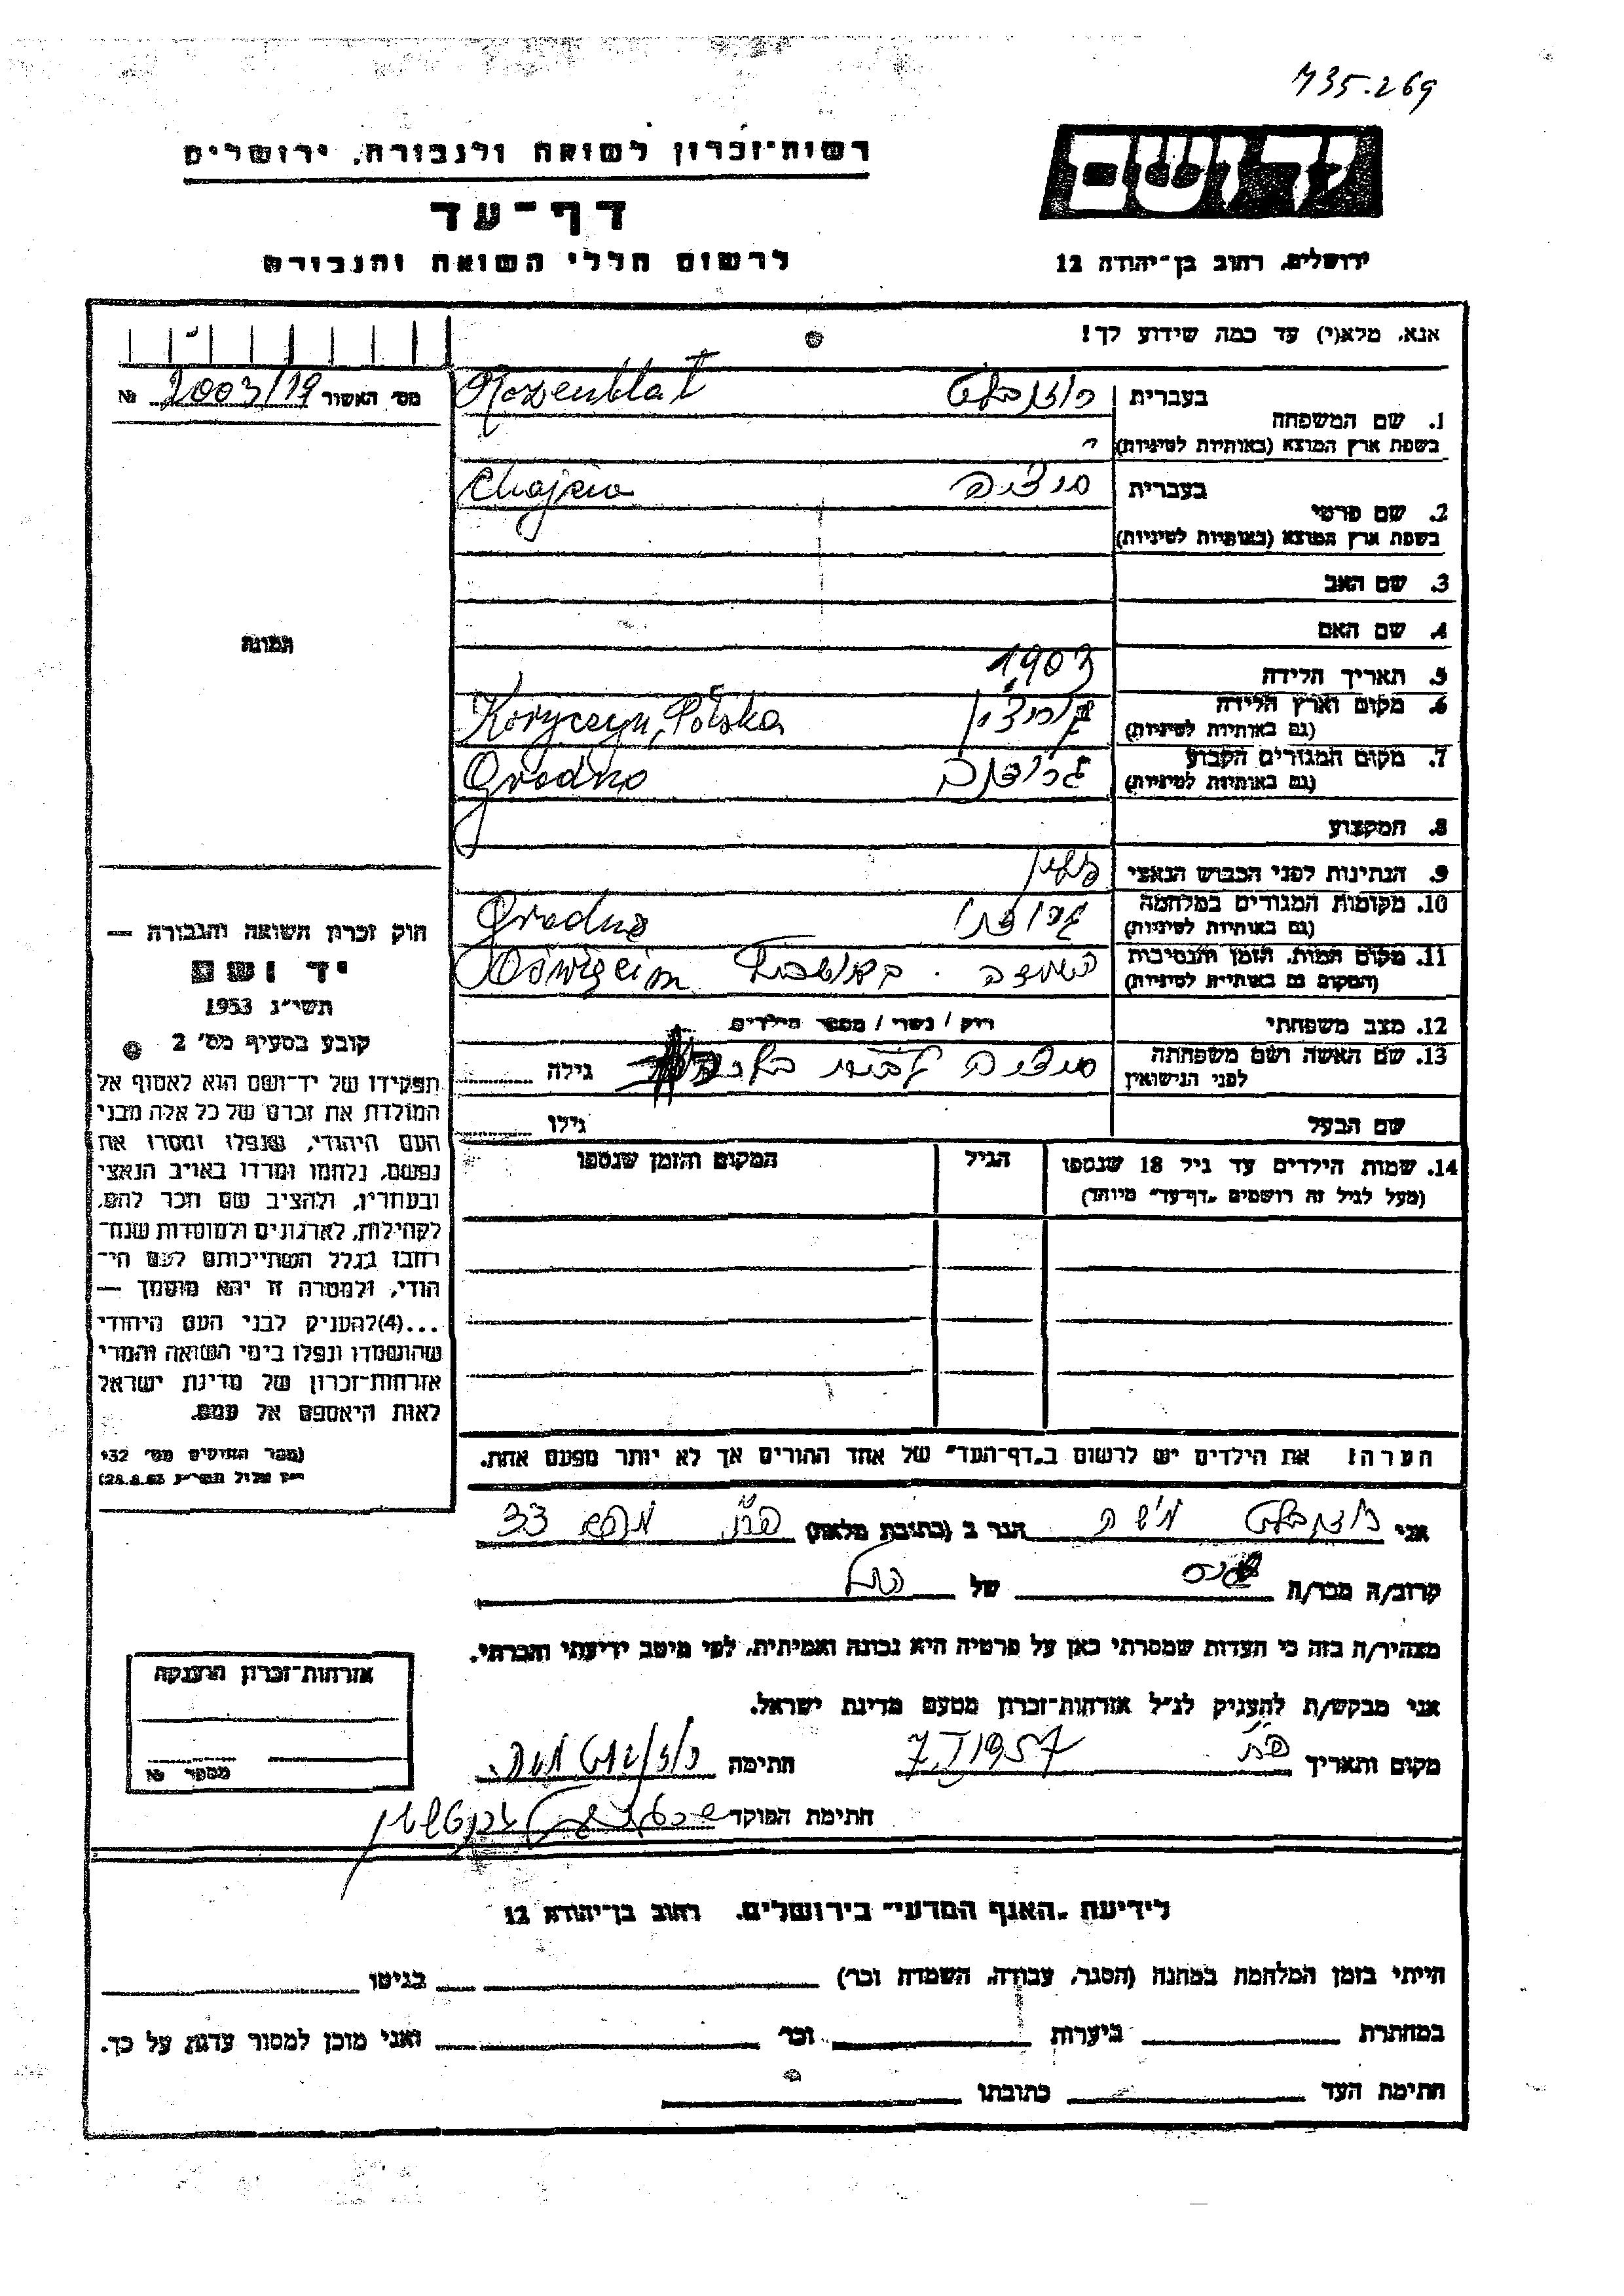 735.269
רשות־זכרון לשואה ולגבורה, ירושלים
יד ושם
דף־עד
לרשום חללי השואה והגבורה
ירושלים, רחוב בן־יהודה 12
אנא, מלא(י) עד כמה שידוע לך!
מס׳ האשור 2003/19 №
1. שם המשפחה
בעברית רוזנבלט Rozenblat
בשפת ארץ המוצא (באותיות לטיניות)
2. שם פרטי
בעברית
בשפת ארץ המוצא (באותיות לטיניות)
3. שם האב
4. שם האם
תמונה
5. תאריך הלידה 1903
6. מקום וארץ הלידה Koryczyn, Polska
(גם באותיות לטיניות)
7. מקום המגורים הקבוע גרודנה Grodno
(גם באותיות לטיניות)
8. המקצוע
9. הנתינות לפני הכבוש הנאצי
10. מקומות המגורים במלחמה Grodno
(גם באותיות לטיניות)
11. מקום המות, הזמן והנסיבות Oświęcim
(המקום גם באותיות לטיניות)
12. מצב משפחתי רוק / נשוי / מספר הילדים
13. שם האשה ושם משפחתה גילה
לפני הנישואין
שם הבעל גילו
14. שמות הילדים עד גיל 18 שנספו הגיל המקום והזמן שנספו
(מעל לגיל זה רושמים „דף־עד״ מיוחד)
הערה: את הילדים יש לרשום ב„דף־העד״ של אחד ההורים אך לא יותר מפעם אחת.
חוק זכרון השואה והגבורה —
יד ושם
תשי״ג 1953
קובע בסעיף מס׳ 2
תפקידו של יד־ושם הוא לאסוף אל
המולדת את זכרם של כל אלה מבני
העם היהודי, שנפלו ומסרו את
נפשם, נלחמו ומרדו באויב הנאצי
ובעוזריו, ולהציב שם וזכר להם,
לקהילות, לארגונים ולמוסדות שנח־
רבו בגלל השתייכותם לעם הי־
הודי, ולמטרה זו יהא מוסמך —
...(4) להעניק לבני העם היהודי
שהושמדו ונפלו בימי השואה והמרי
אזרחות־זכרון של מדינת ישראל
לאות היאספם אל עמם.
(ספר החוקים מס׳ 132
אני רוזנבלט משה הגר ב (כתובת מלאה) 33
קרוב/ה מכר/ה של
מצהיר/ה בזה כי העדות שמסרתי כאן על פרטיה היא נכונה ואמיתית, לפי מיטב ידיעתי והכרתי.
אני מבקש/ת להעניק לנ״ל אזרחות־זכרון מטעם מדינת ישראל.
מקום ותאריך 7.I 1957 חתימה
חתימת הפוקד
אזרחות־זכרון הוענקה
מספר №
לידיעת „האגף המדעי״ בירושלים, רחוב בן־יהודה 12
הייתי בזמן המלחמה במחנה (הסגר, עבודה, השמדה וכו׳) בגיטו
במחתרת ביערות וכו׳ ואני מוכן למסור עדות על כך.
חתימת העד כתובתו